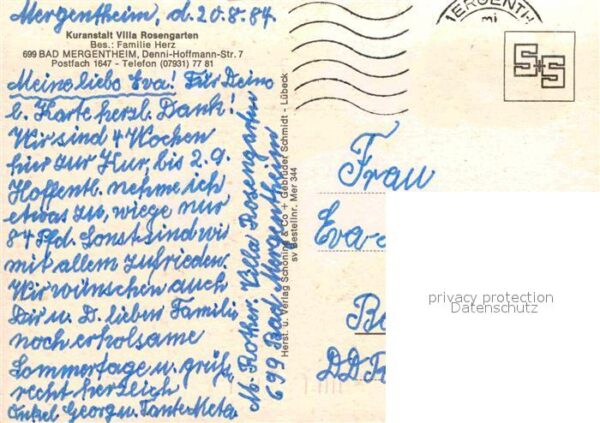 Mergentheim, d. 20.8.84
Kuranstalt Villa Rosengarten
Bes.: Familie Herz
699 BAD MERGENTHEIM, Denni-Hoffmann-Str. 7
Postfach 1647 - Telefon (07931) 77 81
Meine liebe Eva! Für Deine
l. Karte herzl. Dank!
Wir sind 4 Wochen
hier zur Kur, bis 2.9.
Hoffentl. nehme ich
etwas zu, wiege nur
84 Pfd. Sonst sind wir
mit allem zufrieden.
Wir wünschen auch
Dir u. D. lieben Familie
noch erholsame
Sommertage u. grüße
recht herzlich
Onkel Georg u. Tante Meta
Abs. Rother, Villa Rosengarten
699 Bad Mergentheim
Herst. u. Verlag Schöning & Co + Gebrüder Schmidt - Lübeck
sv Bestellnr. Mer 344
MERGENTH
mi
S+S
Frau
Eva-
DDR
privacy protection
Datenschutz